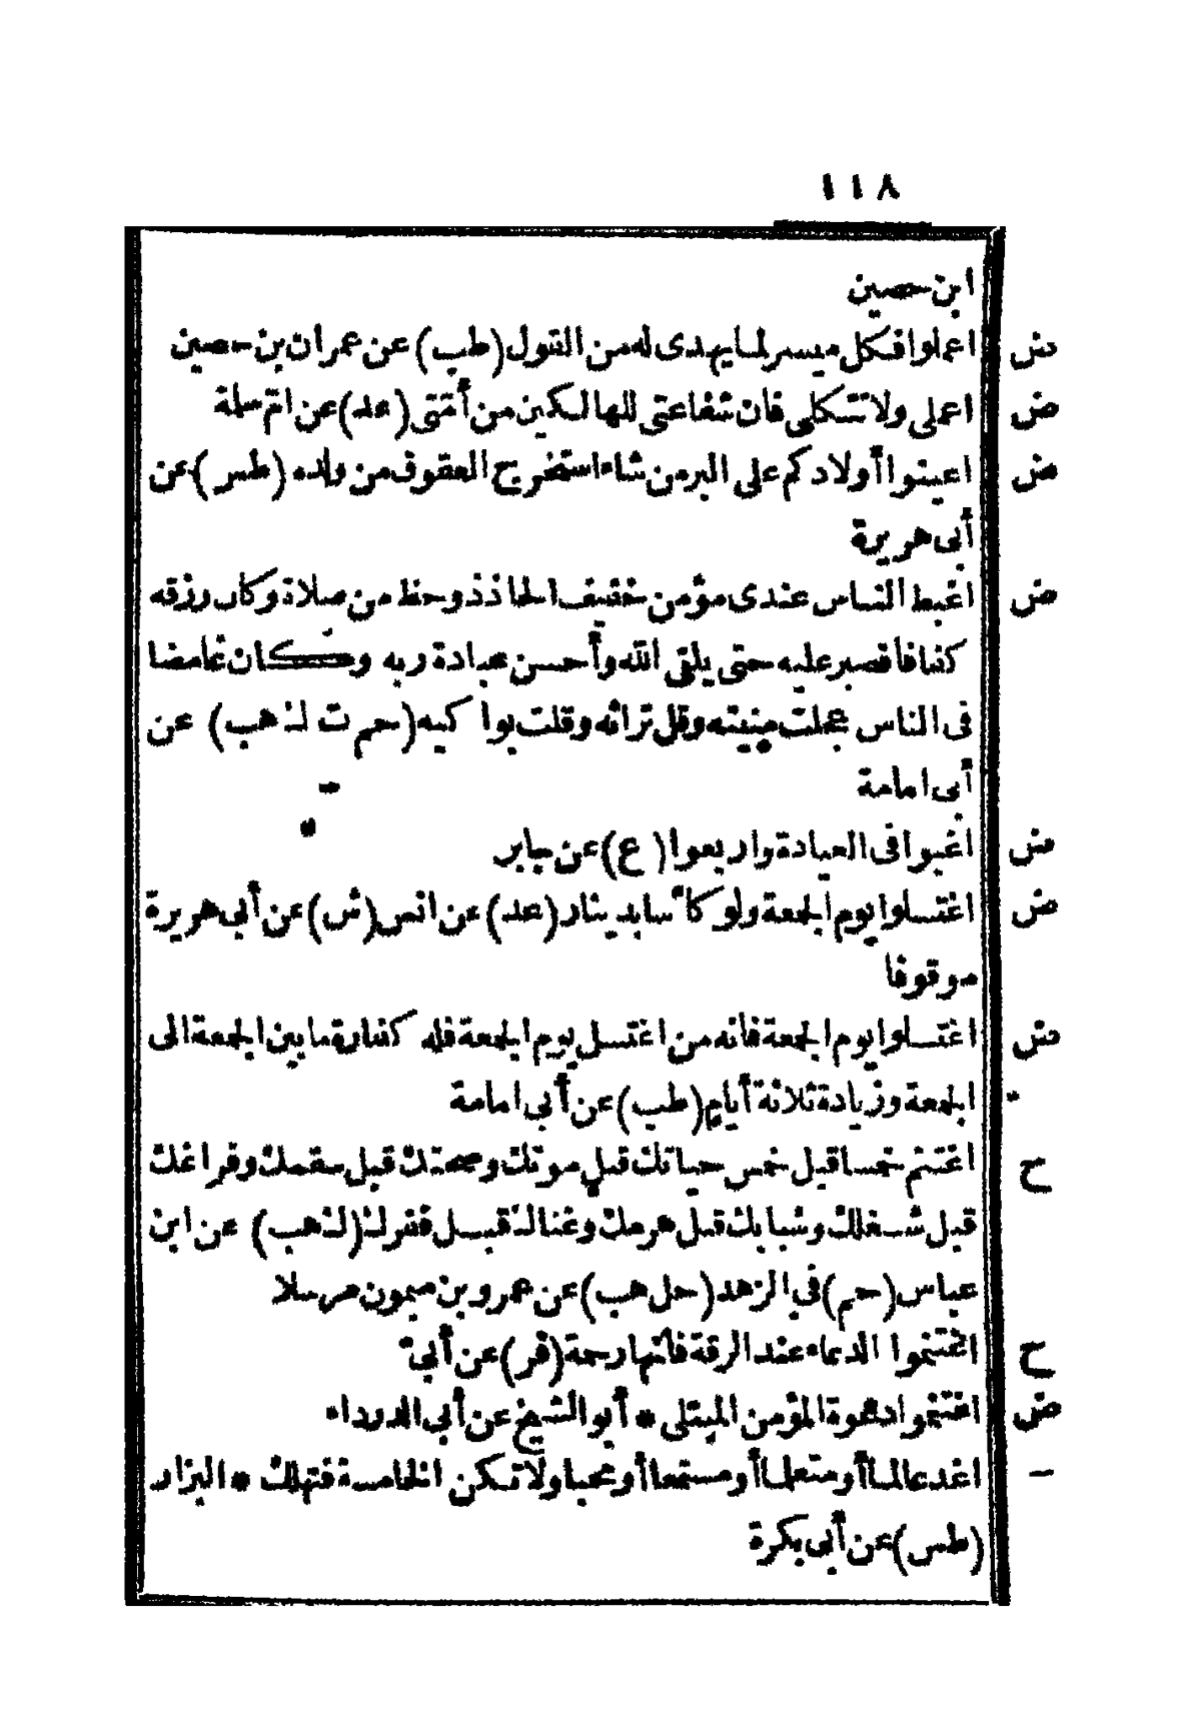 ١١٨
ابن حصين
ض اعملوا فكل ميسر لما يهدى له من القول (طب) عن عمران بن حصين
ض اعملى ولا تتكلى فان شفاعتى للهالكين من أمتى (عد) عن ام سلمة
ض اعينوا أولادكم على البر من شاء استخرج العقوق من ولده (طس) عن
أبى هريرة
ض اغبط الناس عندى مؤمن خفيف الحاذ ذو حظ من صلاة وكان رزقه
كفافا فصبر عليه حتى يلقى الله وأحسن عبادة ربه وكان غامضا
فى الناس عجلت منيته وقل تراثه وقلت بواكيه (حم ت ك هب) عن
أبى امامة
ض اغبوا فى العيادة واربعوا (ع) عن جابر
ض اغتسلوا يوم الجمعة ولو كأسا بدينار (عد) عن انس (ش) عن أبى هريرة
موقوفا
ض اغتسلوا يوم الجمعة فانه من اغتسل يوم الجمعة فله كفارة ما بين الجمعة الى
الجمعة وزيادة ثلاثة أيام (طب) عن أبى امامة
ح اغتنم خمسا قبل خمس حياتك قبل موتك وصحتك قبل سقمك وفراغك
قبل شغلك وشبابك قبل هرمك وغناك قبل فقرك (ك هب) عن ابن
عباس (حم) فى الزهد (حل هب) عن عمرو بن ميمون مرسلا
ح اغتنموا الدعاء عند الرقة فانها رحمة (فر) عن أبى
ض اغتنموا دعوة المؤمن المبتلى * أبو الشيخ عن أبى الدرداء
– اغد عالما أو متعلما أو مستمعا أو محبا ولا تكن الخامسة فتهلك * البزار
(طس) عن أبى بكرة